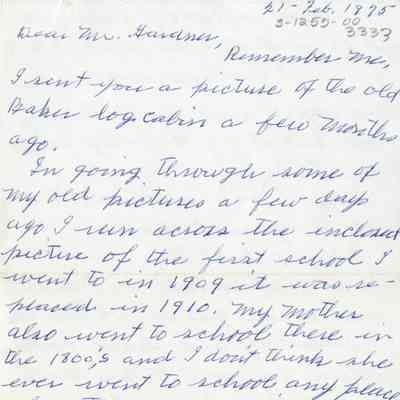 21 - Feb. 1975
S-1255-00
3333
Dear Mr. Gardner,
Remember Me,
I sent you a picture of the old
Baker log cabin a few months
ago.
In going through some of
my old pictures a few days
ago I run across the inclosed
picture of the first school I
went to in 1909 it was re-
placed in 1910. My Mother
also went to school there in
the 1800,s and I don't think she
ever went to school any place